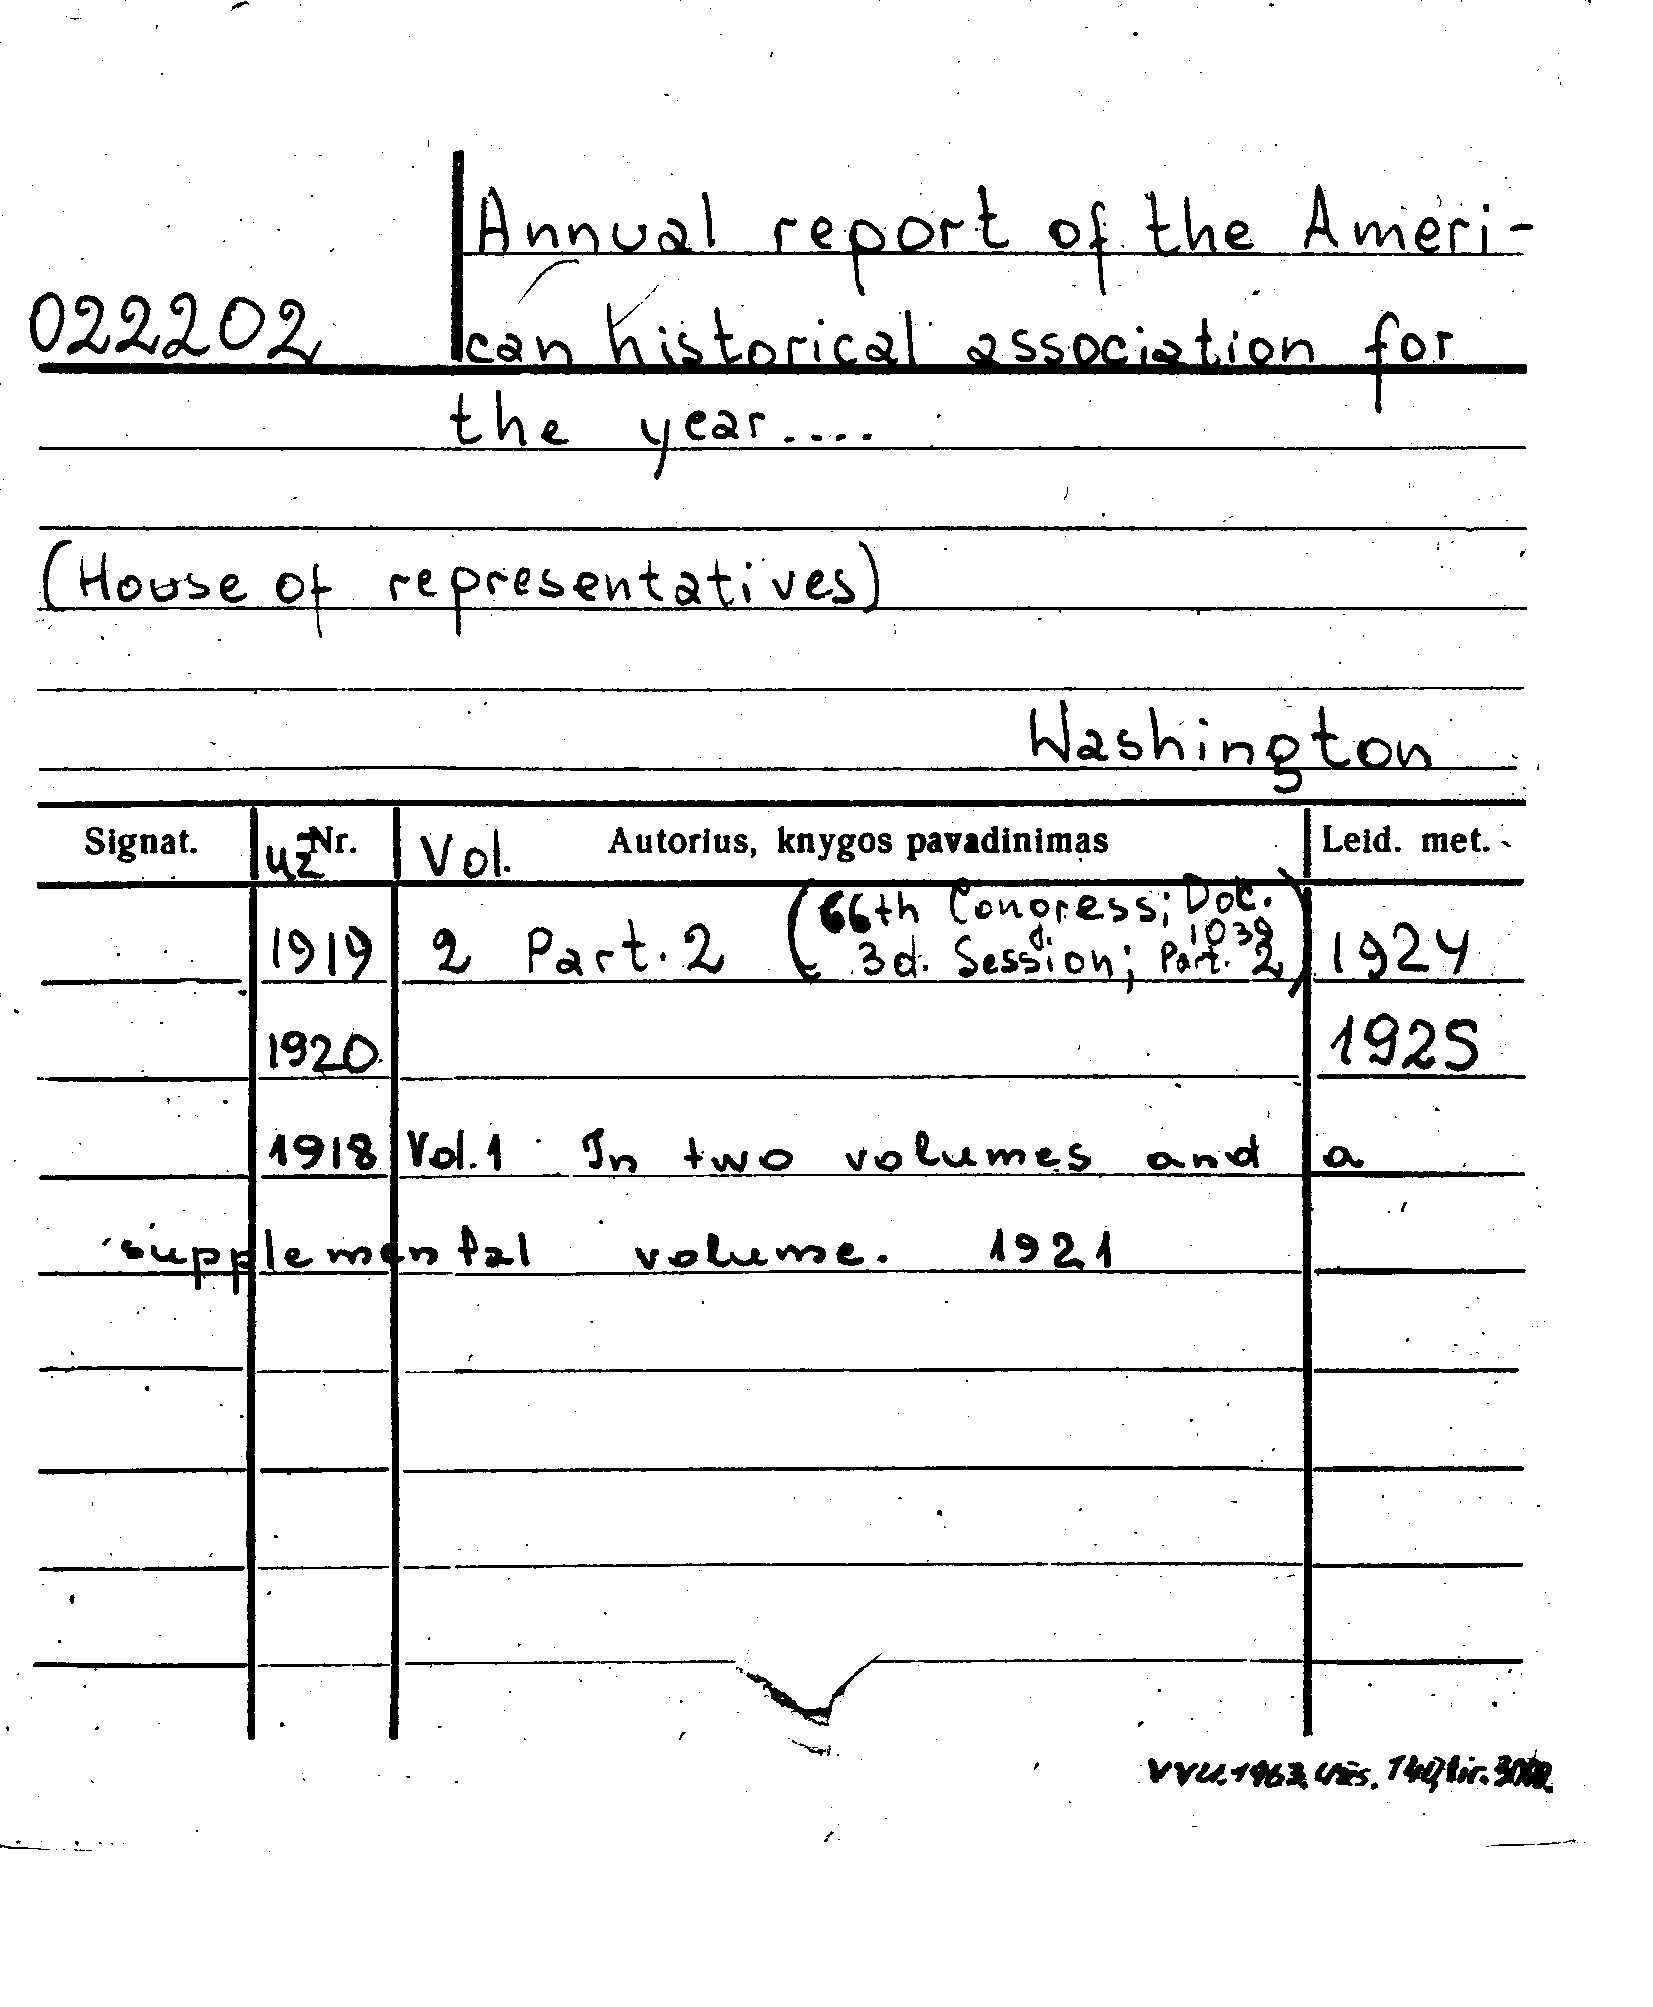 Annual report of the Ameri-
022202 can historical association for
the year....
(House of representatives)
Washington
Signat. už Nr. Vol. Autorius, knygos pavadinimas Leid. met.
(66th Congress; Doc. 1039
1919 2 Part. 2 3d. Session; Part. 2) 1924
1920 1925
1918 Vol.1 In two volumes and a
supplemental volume. 1921
VVU. 1963. Užs. 140, tir.